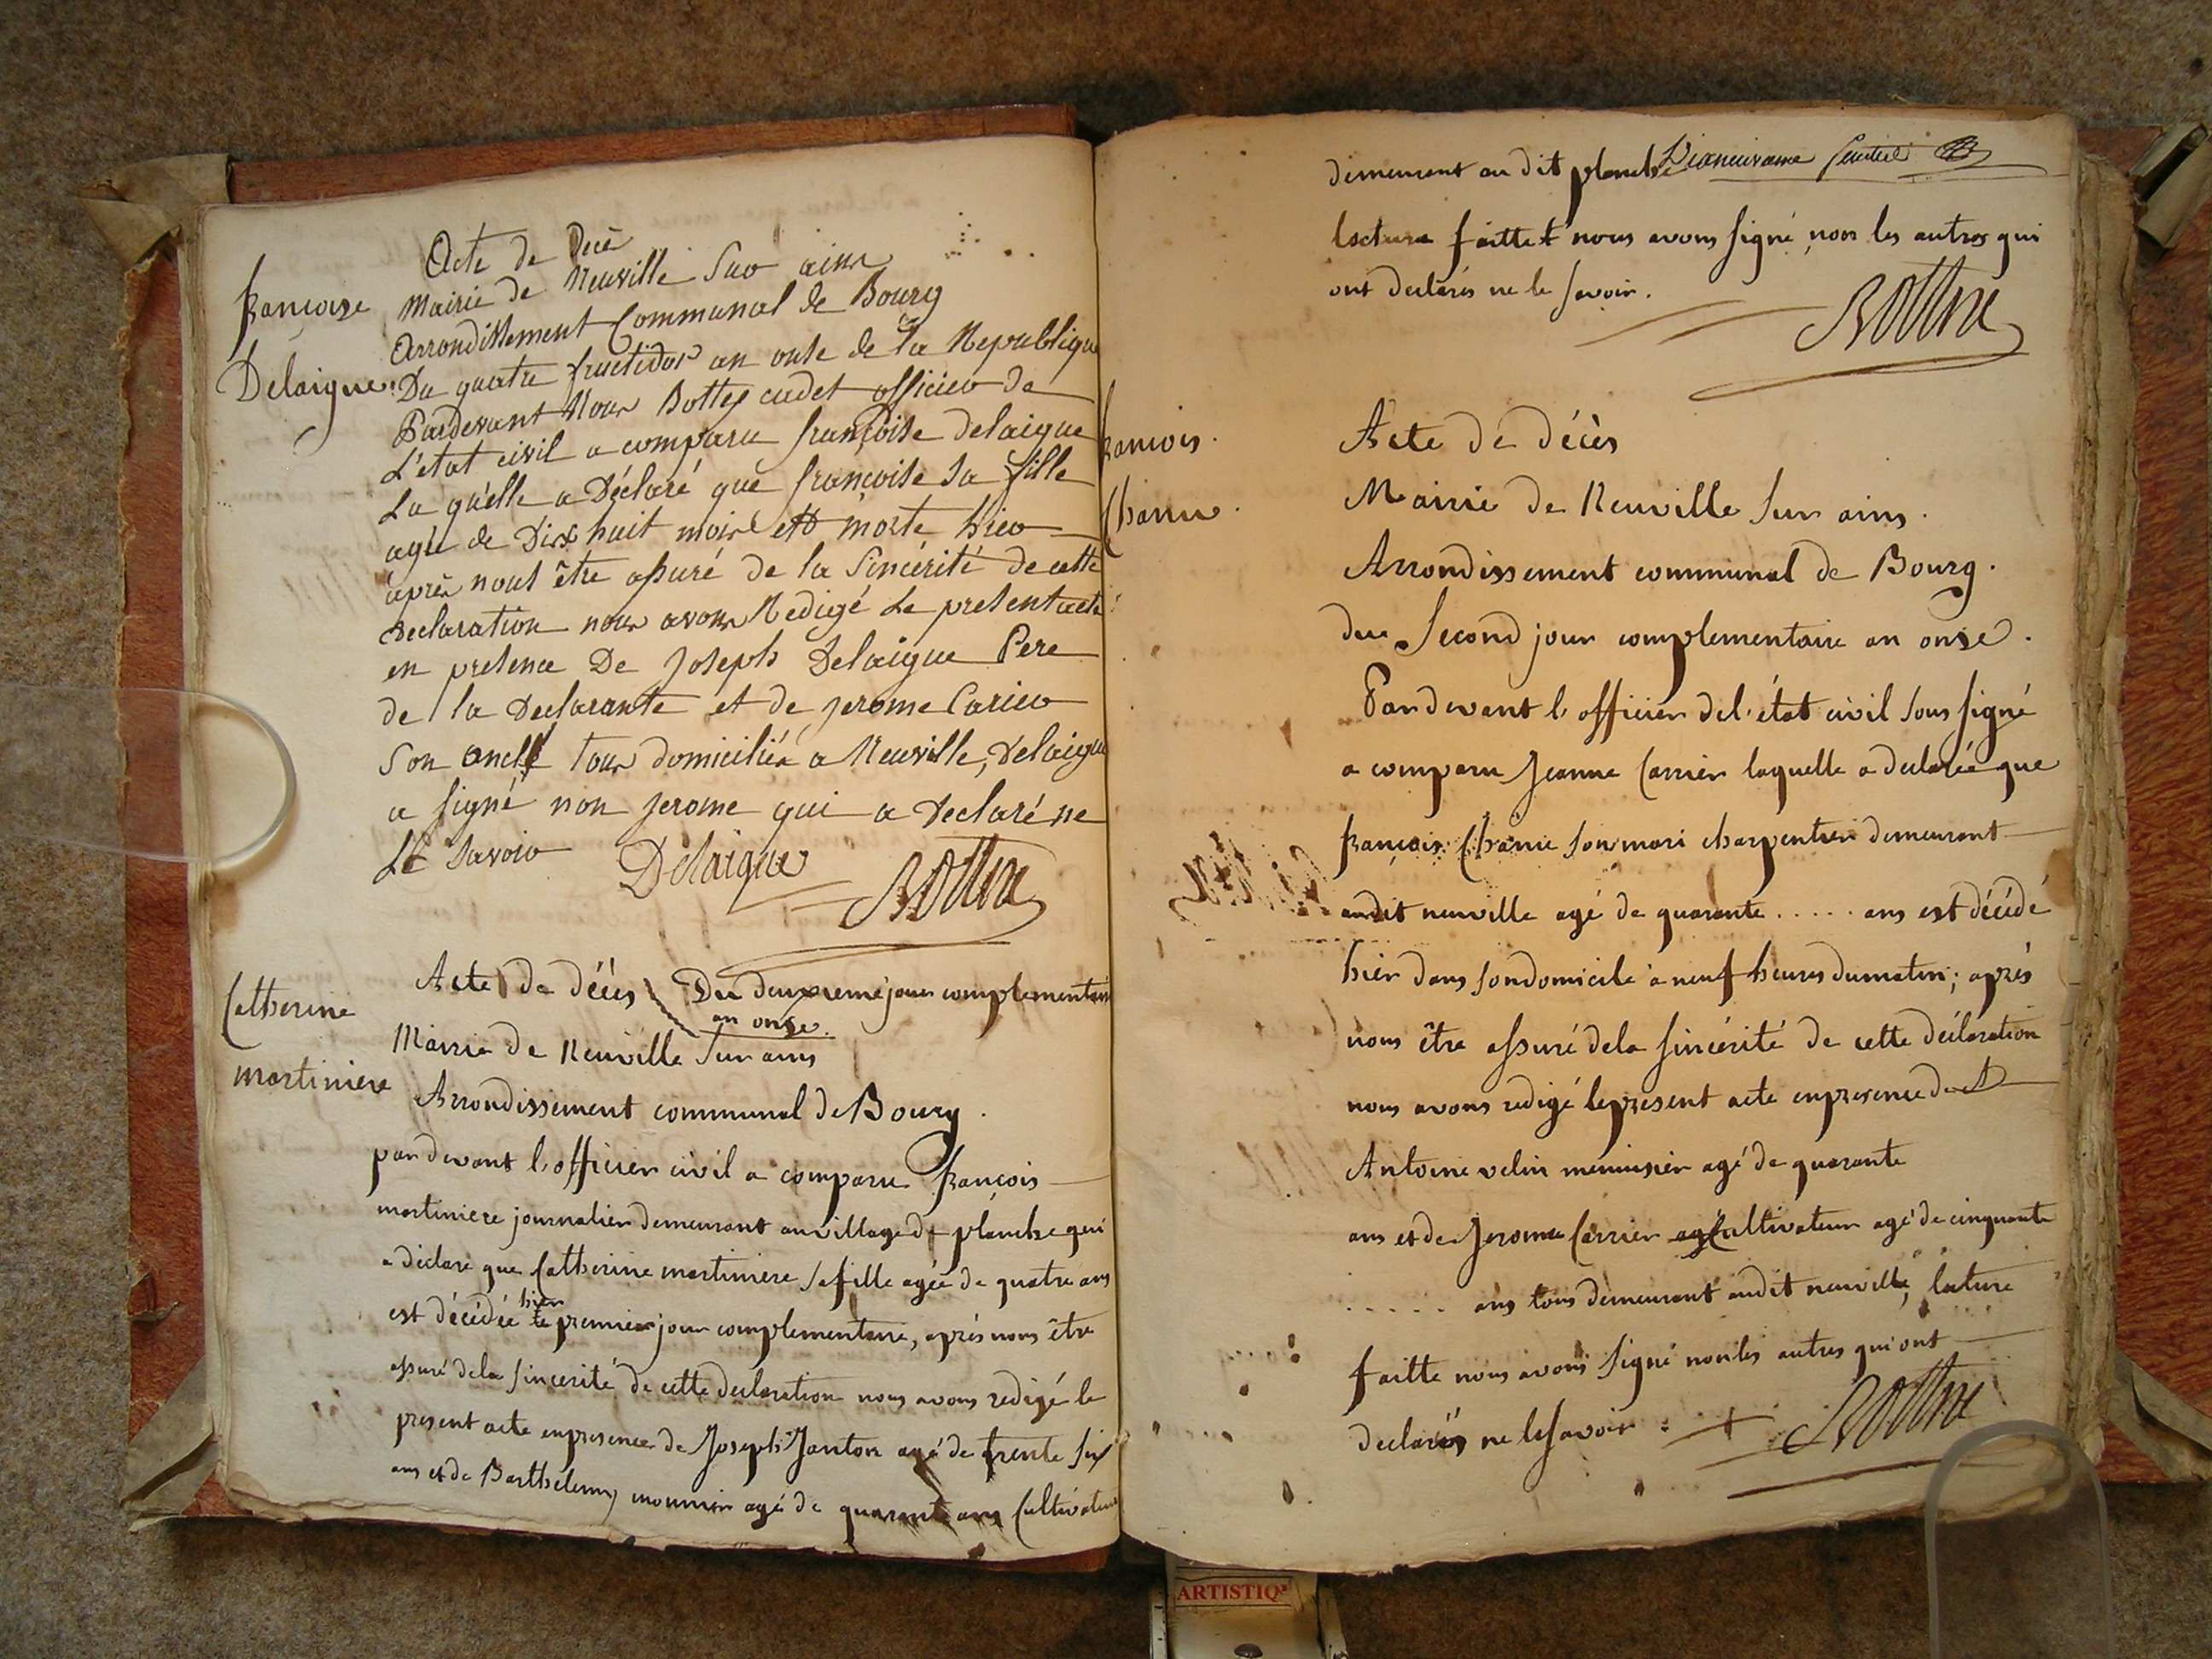 Acte de Decè
françoise
Mairie de Neuville Sur ainx
Arrondissement Communal de Bourg
Delaigue
Du quatre fructidor an onse de la Republique
Pardevant Nous Bottex cadet officier de
L'état civil a comparu françoise delaigue
La qu'elle a Déclaré que françoise sa fille
agée de Dix huit mois est morte hier
après nous être assuré de la Sincérité de cette
declaration nous avons Redigé Le present acte
en presence De Joseph Delaigue Pere
de la Declarante et de jerome Carier
Son oncle tous domiciliés a Neuville, Delaigue
a signé non jerome qui a Declaré ne
Le Savoir Delaigue
Bottex
Acte de décès Du deuxieme jour complementaire
an onse.
Catherine
martiniere
Mairie de Neuville Sur ains
Arrondissement communal de Bourg.
par devant l'officier civil a comparu françois
martiniere journalier demeurant au village de planche qui
a déclaré que Catherine martiniere sa fille agée de quatre ans
est décédée hier le premier jour complementaire, après nous être
assuré dela sincerité de cette declaration nous avons redigé le
present acte en presence de Joseph Janton agé de trente six
ans et de Barthelemy mounier agé de quarante ans Cultivateurs
demeurant au dit planche
lecture faitte nous avons signé non les autres qui
ont declarés ne le savoir.
Bottex
françois.
Chanu.
Acte de décès
Mairie de Neuville Sur ains.
Arrondissement communal de Bourg.
du Second jour complementaire an onse.
Pardevant l'officier del'état civil Sous signé
a comparu Jeanne Carrier laquelle a declarée que
françois Chanu son mari charpentier demeurant
audit neuville agé de quarante ..... ans est décédé
hier dans son domicile a neuf heures du matin; après
nous être assuré dela sincérité de cette déclaration
nous avons redigé le present acte en presence de
Antoine velin menuisier agé de quarante
ans et de Jerome Carrier Cultivateur agé de cinquante
..... ans tous demeurant audit neuville, lecture
faitte nous avons signé non les autres qui ont
declarés ne le savoir : Bottex
ARTISTIQ